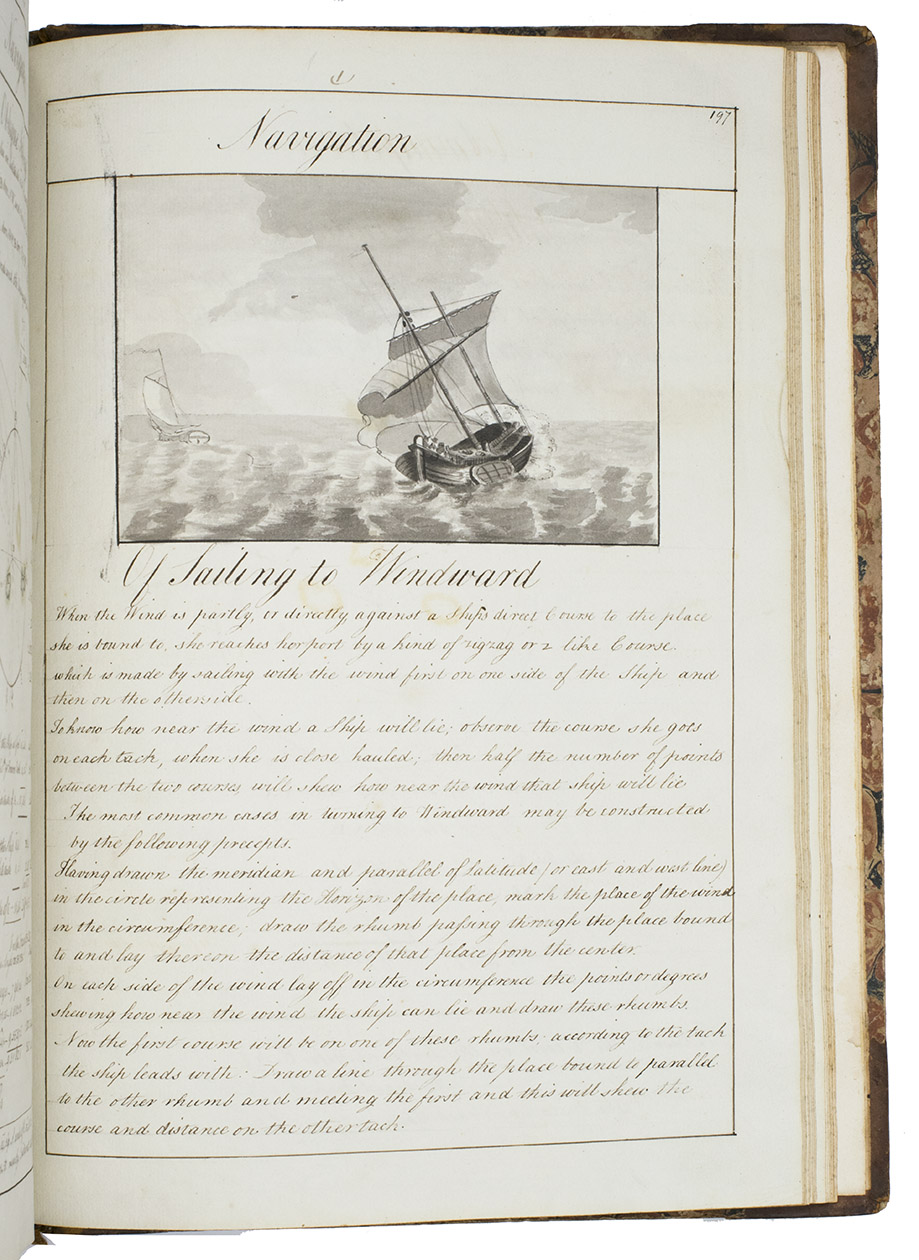 197
Navigation
Of Sailing to Windward
When the Wind is partly, or directly against a Ships direct Course to the place
she is bound to, she reaches her port by a kind of zigzag or z like Course.
which is made by sailing with the wind first on one side of the Ship and
then on the otherside.
To know how near the wind a Ship will lie; observe the course she goes
on each tack, when she is close hauled; then half the number of points
between the two courses will shew how near the wind that ship will lie
The most common cases in turning to Windward may be constructed
by the following precepts.
Having drawn the meridian and parallel of Latitude (or east and west line)
in the circle representing the Horizon of the place, mark the place of the wind
in the circumference; draw the rhumb passing through the place bound
to and lay thereon the distance of that place from the center.
On each side of the wind lay off in the circumference the points or degrees
shewing how near the wind the ship can lie and draw these rhumbs.
Now the first course will be on one of these rhumbs, according to the tack
the ship leads with: Draw a line through the place bound to parallel
to the other rhumb and meeting the first and this will shew the
course and distance on the other tack.